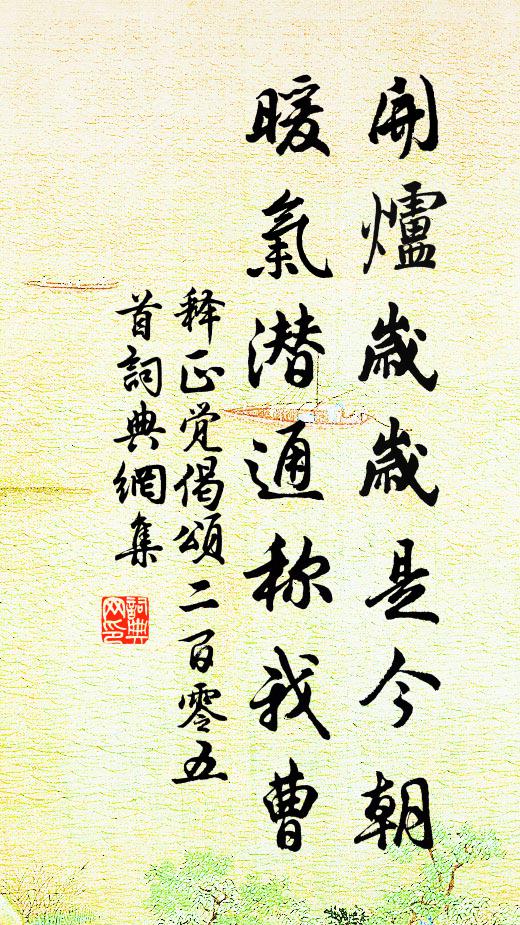 開爐歲歲是今朝
暖氣潜通称我曹
释正觉偈頌二百零五
首詞典網集
詞典网印